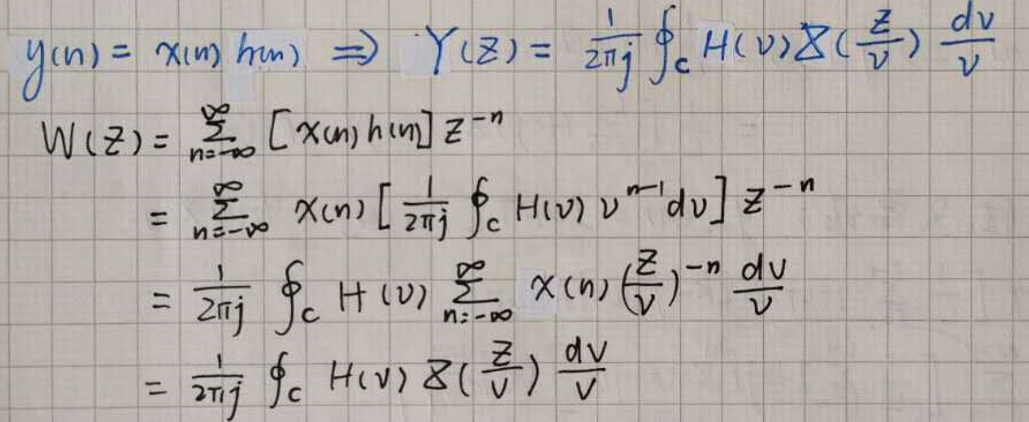 y(n) = x(n) h(n) ⇒ Y(z) = \frac{1}{2πj} ∮_c H(v) X(\frac{z}{v}) \frac{dv}{v}
W(z) = \sum_{n=-∞}^{∞} [x(n) h(n)] z^{-n}
= \sum_{n=-∞}^{∞} x(n) [\frac{1}{2πj} ∮_c H(v) v^{n-1} dv] z^{-n}
= \frac{1}{2πj} ∮_c H(v) \sum_{n=-∞}^{∞} x(n) (\frac{z}{v})^{-n} \frac{dv}{v}
= \frac{1}{2πj} ∮_c H(v) X(\frac{z}{v}) \frac{dv}{v}